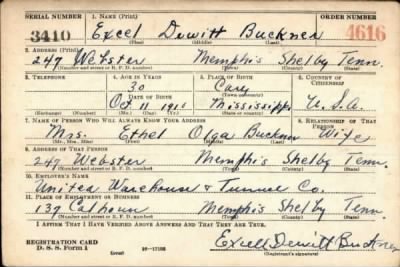 SERIAL NUMBER 1. NAME (Print) ORDER NUMBER
3410 Excel Dewitt Buckner 4616
(First) (Middle) (Last)
2. ADDRESS (Print)
247 Webster Memphis Shelby Tenn.
(Number and street or R. F. D. number) (Town) (County) (State)
3. TELEPHONE 4. AGE IN YEARS 5. PLACE OF BIRTH 6. COUNTRY OF CITIZENSHIP
30 Cary
DATE OF BIRTH (Town or county)
Oct 11 1910 Mississippi U.S.A.
(Exchange) (Number) (Mo.) (Day) (Yr.) (State or country)
7. NAME OF PERSON WHO WILL ALWAYS KNOW YOUR ADDRESS 8. RELATIONSHIP OF THAT PERSON
Mrs. Ethel Olga Buckner Wife
(Mr., Mrs., Miss) (First) (Middle) (Last)
9. ADDRESS OF THAT PERSON
247 Webster Memphis Shelby Tenn.
(Number and street or R. F. D. number) (Town) (County) (State)
10. EMPLOYER'S NAME
United Warehouse & Co.
11. PLACE OF EMPLOYMENT OR BUSINESS
139 Calhoun Memphis Shelby Tenn.
(Number and street or R. F. D. number) (Town) (County) (State)
I AFFIRM THAT I HAVE VERIFIED ABOVE ANSWERS AND THAT THEY ARE TRUE.
REGISTRATION CARD Excell Dewitt Buckner
D. S. S. Form 1 (Registrant's signature)